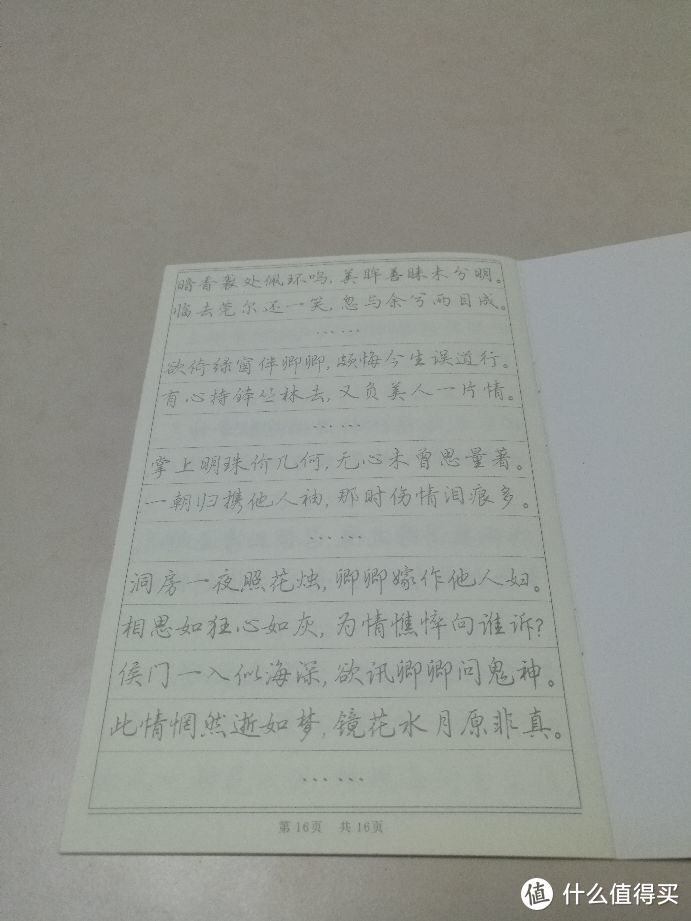 暗香袭处佩环鸣,美眸善睐未分明。
临去莞尔还一笑,忽与余兮两目成。
……
欲倚绿窗伴卿卿,颇悔今生误道行。
有心持钵丛林去,又负美人一片情。
……
掌上明珠价几何,无心未曾思量著。
一朝归携他人袖,那时伤情泪痕多。
……
洞房一夜照花烛,卿卿嫁作他人妇。
相思如狂心如灰,为情憔悴向谁诉?
侯门一入似海深,欲讯卿卿问鬼神。
此情惘然逝如梦,镜花水月原非真。
……
第16页 共16页
值 什么值得买